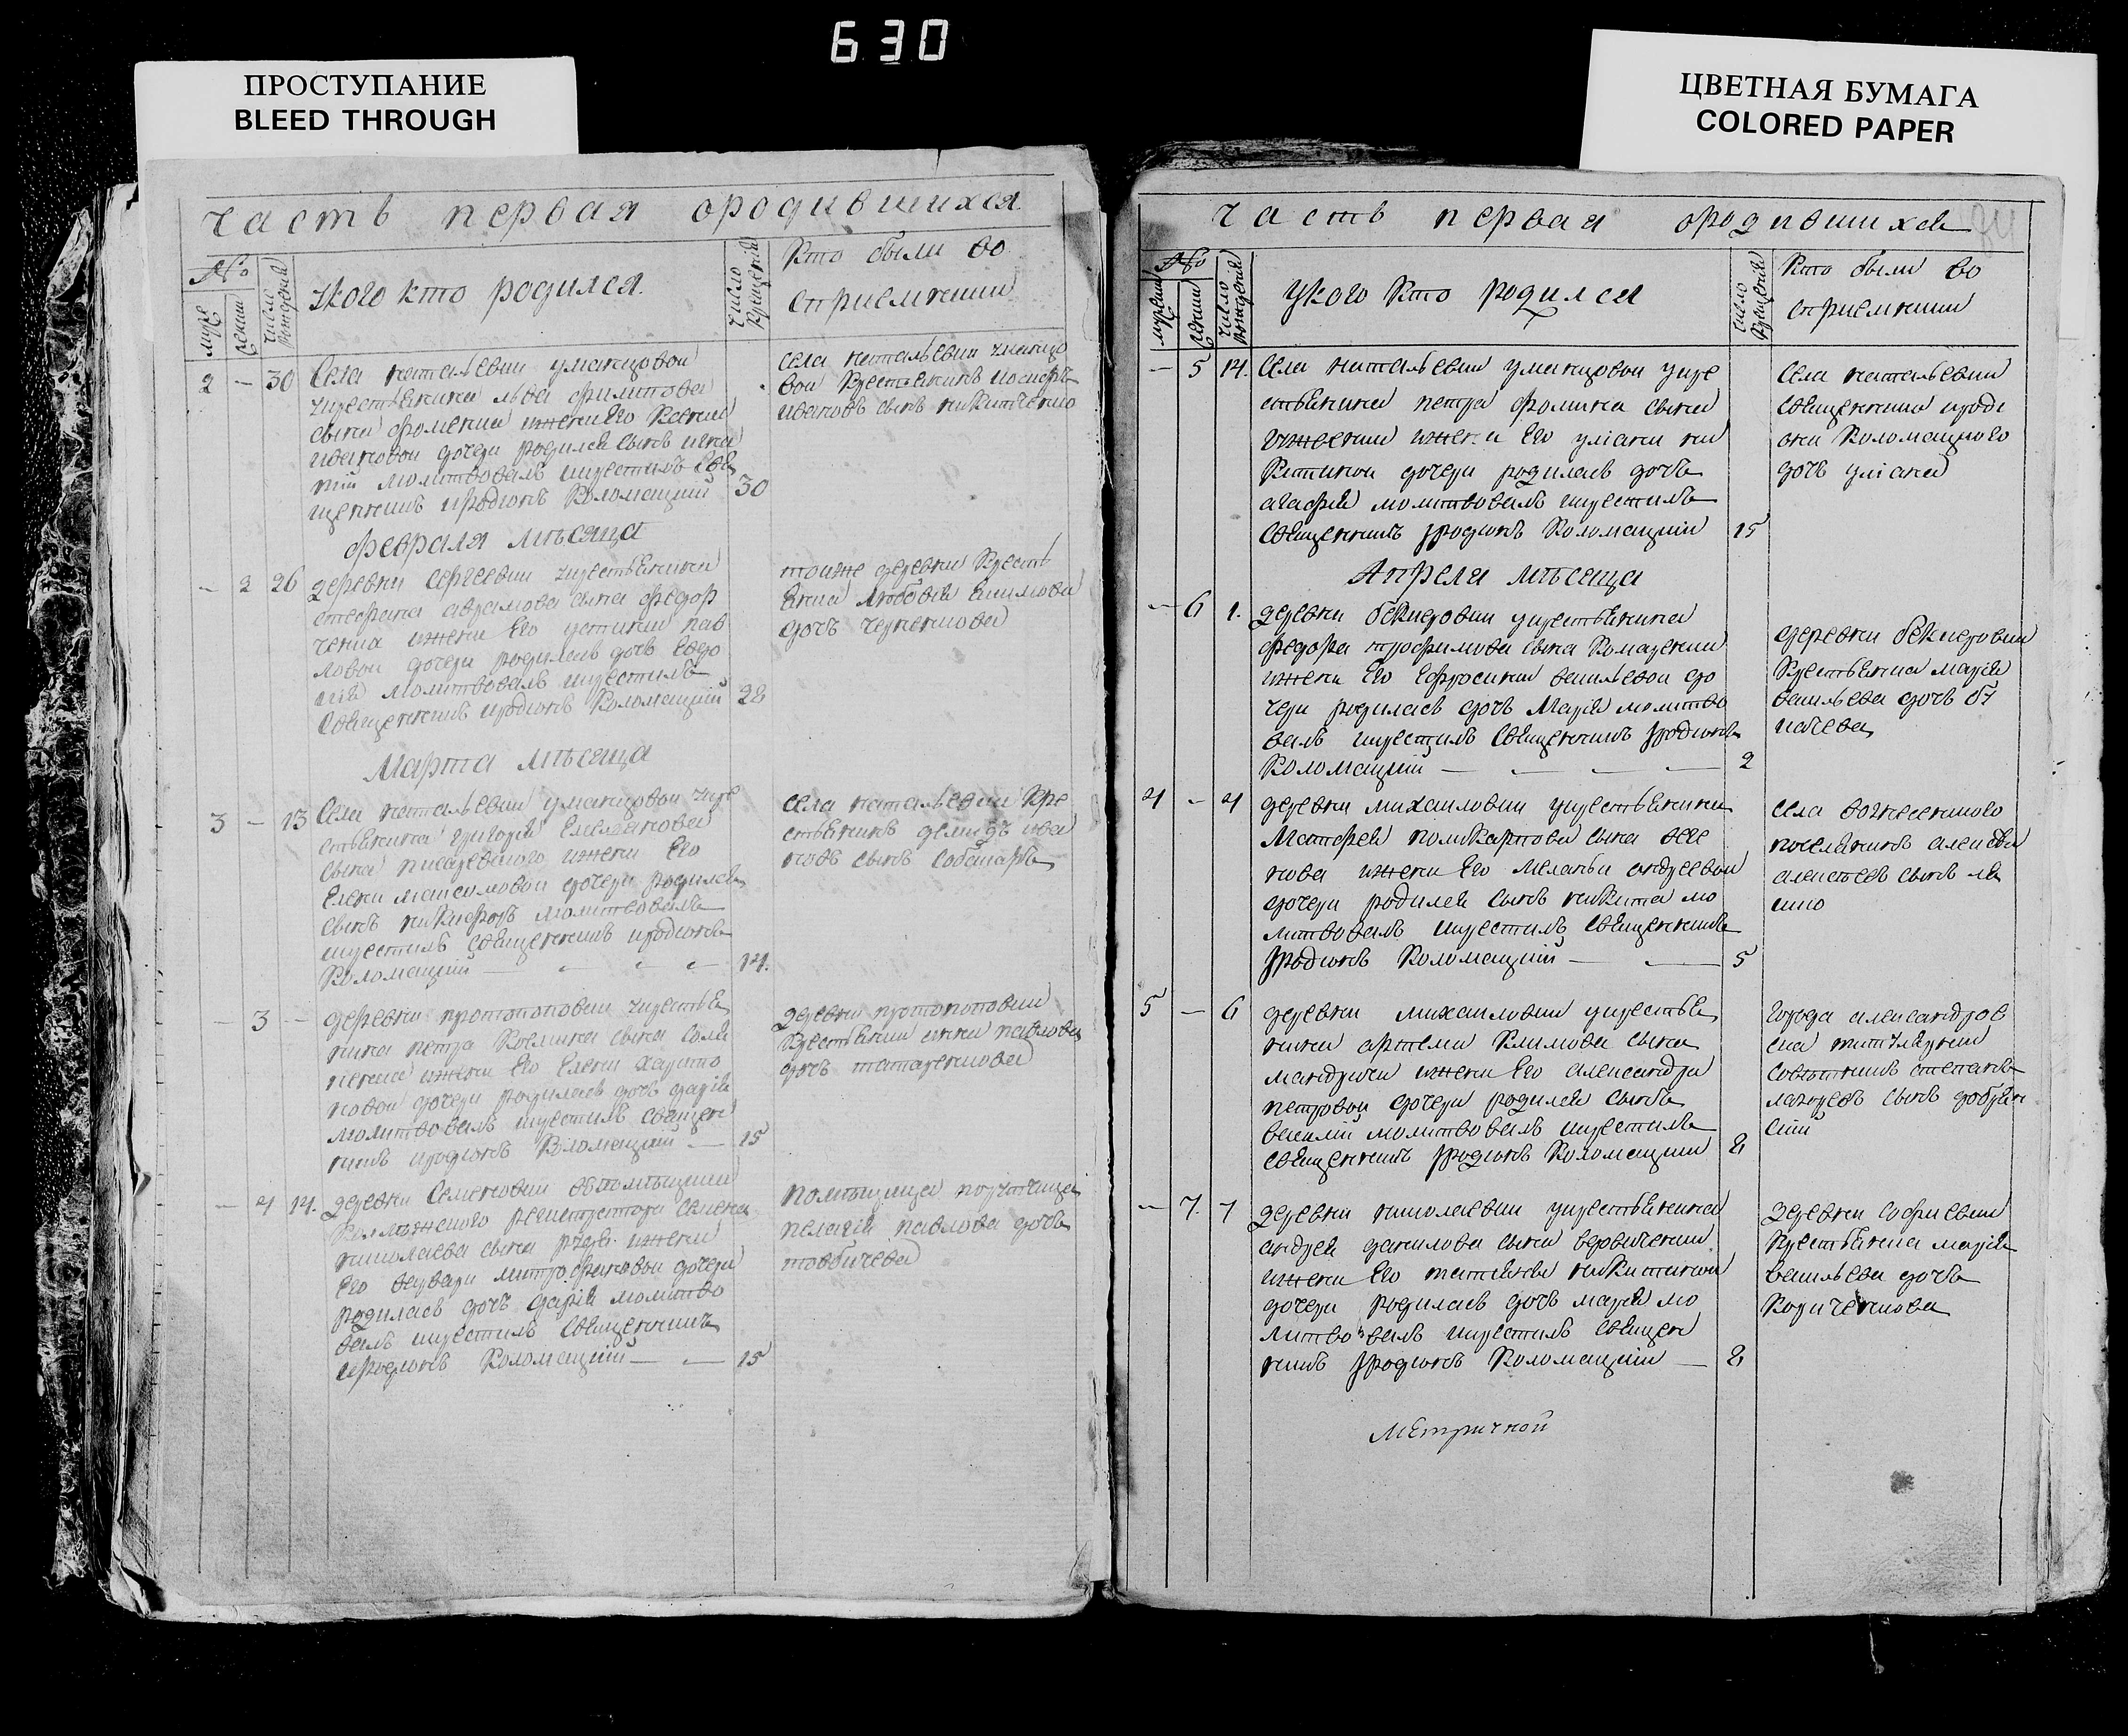 630
ПРОСТУПАНИЕ
BLEED THROUGH
ЦВЕТНАЯ БУМАГА
COLORED PAPER
часть первая ородившихся
№
муже
женски
число рождения
укого кто родился
число крещения
кто были во
сприемники
2 - 30 Села натальевки уманцовой
укрестьянина льва филипова
сына фоменка ижени Его Ксении
ивановой дочери родился сынъ
молитвовалъ икрестилъ свя
щенникъ иродионъ Коломацкий 30
села натальевки уманцо
вой крестьянинъ
ивановъ сынъ никитченко
февраля мѣсяца
- 2 26 деревни Сергеевки укрестьянина
стефана аврамова сына федор
ченка ижени Его устинии пав
ловой дочери родилась дочь Евдо
кия молитвовалъ икрестилъ
Священникъ иродионъ Коломацкий 28
тоиже деревни кресть
янка
дочь
Марта мѣсяца
3 - 13 Села натальевки уманцовой укре
стьянина григория
сына писаревского ижени Его
Елени максимовой дочери родился
сынъ никифоръ молитвовалъ
икрестилъ священникъ иродионъ
Коломацкий 14.
села натальевки кре
стьянинъ демидъ ива
новъ сынъ
- 3 - деревни протопоповки укрестья
нина петра сына
ижени Его Елени харито
новой дочери родилась дочь дария
молитвовалъ икрестилъ священ
никъ иродионъ Коломацкий 15
деревни протопоповки
крестьянки анна павлова
дочь татаренкова
- 4 14. деревни Семеновки
регистратора семена
николаева сына ижени
Его варвари митрофановой дочери
родилась дочь дария молитво
валъ икрестилъ священникъ
Иродионъ Коломацкий 15
помѣщица
пелагия павлова дочь
часть первая ородившихся
№
мужески
женски
число рождения
укого кто родился
число крещения
кто были во
сприемники
- 5 14. Села натальевки уманцовой укре
стьянина петра фомина сына
ижени Его улiани ни
китиной дочери родилась дочь
агафия молитвовалъ икрестилъ
священникъ Iродионъ Коломацкiй 15
села натальевки
священника ироди
она Коломацкого
дочь улiана
Апреля мѣсяца
- 6 1. деревни укрестьянина
федора трофимова сына Комаренка
ижени Его Ефросинии васильевой до
чери родилась дочь Мария молитво
валъ икрестилъ священникъ Iродионъ
Коломацкий 2
деревни
крестьянка мария
васильева дочь
4 - 4 деревни михаиловки укрестьянина
Матфея поликарпова сына
ижени Его меланьи андреевой
дочери родился сынъ никита мо
литвовалъ икрестилъ священникъ
Iродионъ Коломацкий 5
села вознесенского
поселянинъ
алексеевъ сынъ
5 - 6 деревни михаиловки укрестья
нина артема Климова сына
ижени Его александри
петровой дочери родился сынъ
василий молитвовалъ икрестилъ
священникъ Iродионъ Коломацкий 8
города александров
ска титулярний
советникъ степанъ
лазаревъ сынъ
- 7. 7 деревни николаевки укрестьянина
андрея данилова сына
ижени Его татьяны никитиной
дочери родилась дочь мария мо
литвовалъ икрестилъ священ
никъ Iродионъ Коломацкiй 8
деревни софиевки
крестьянка мария
васильева дочь
метричной